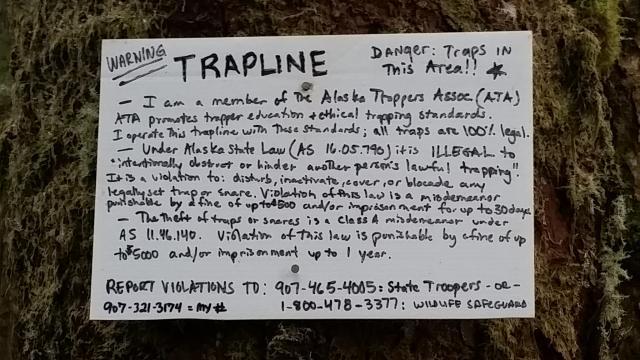 WARNING
TRAPLINE
DANGER: TRAPS IN
THIS AREA!!
— I am a member of The Alaska Trappers Assoc. (ATA)
ATA promotes trapper education & ethical trapping standards.
I operate this trapline with these standards; all traps are 100% legal.
— Under Alaska State Law (AS 16.05.790) it is ILLEGAL to
"intentionally obstruct or hinder another person's lawful trapping".
It is a violation to: disturb, inactivate, cover, or blockade any
legally set trap or snare. Violation of this law is a misdemeanor
punishable by a fine of up to $500 and/or imprisonment for up to 30 days
— The theft of traps or snares is a class A misdemeanor under
AS 11.46.140. Violation of this law is punishable by a fine of up
to $5000 and/or imprisonment up to 1 year.
REPORT VIOLATIONS TO: 907-465-4005: State Troopers -OR-
907-321-3174 = MY # 1-800-478-3377: WILDLIFE SAFEGUARD